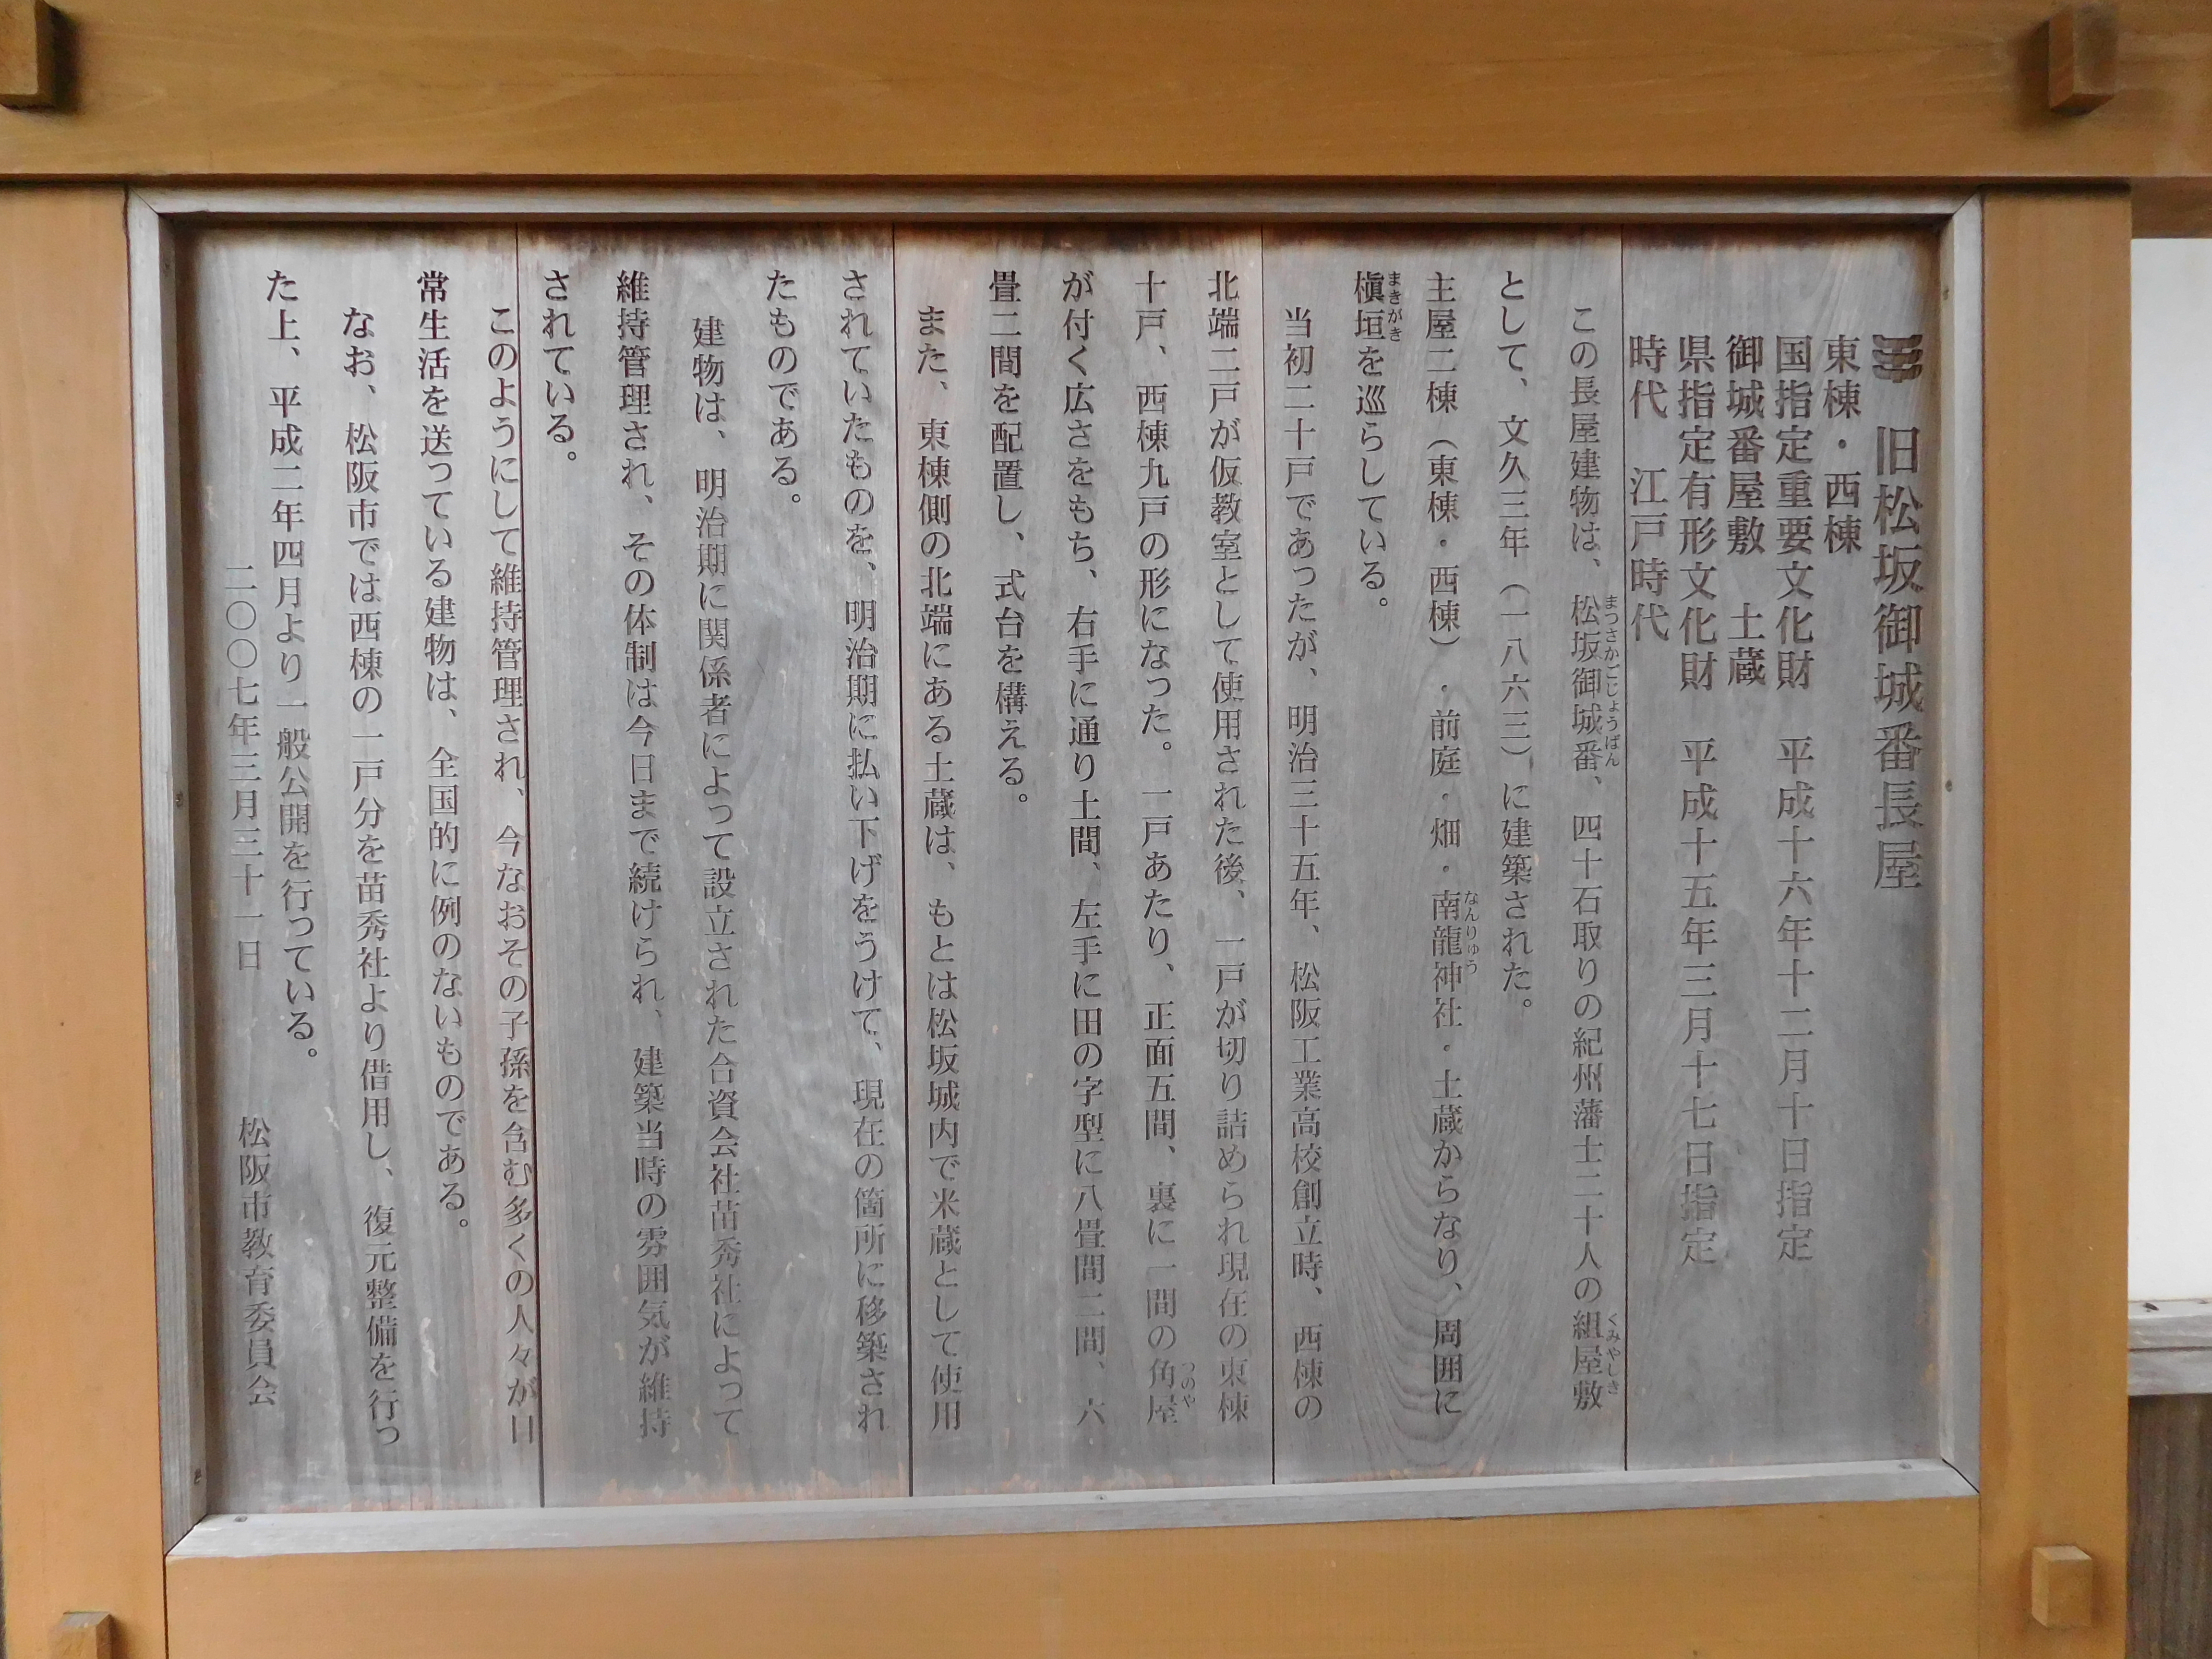 旧松坂御城番長屋
東棟・西棟
国指定重要文化財　平成十六年十二月十日指定
御城番屋敷　土蔵
県指定有形文化財　平成十五年三月十七日指定
時代　江戸時代
この長屋建物は、松坂御城番、四十石取りの紀州藩士二十人の組屋敷
まつさかごじょうばん
くみやしき
として、文久三年（一八六三）に建築された。
主屋二棟（東棟・西棟）・前庭・畑・南龍神社・土蔵からなり、周囲に
なんりゅう
槇垣を巡らしている。
まきがき
当初二十戸であったが、明治三十五年、松阪工業高校創立時、西棟の
北端二戸が仮教室として使用された後、一戸が切り詰められ現在の東棟
十戸、西棟九戸の形になった。一戸あたり、正面五間、裏に一間の角屋
つのや
が付く広さをもち、右手に通り土間、左手に田の字型に八畳間二間、六
畳二間を配置し、式台を構える。
また、東棟側の北端にある土蔵は、もとは松坂城内で米蔵として使用
されていたものを、明治期に払い下げをうけて、現在の箇所に移築され
たものである。
建物は、明治期に関係者によって設立された合資会社苗秀社によって
維持管理され、その体制は今日まで続けられ、建築当時の雰囲気が維持
されている。
このようにして維持管理され、今なおその子孫を含む多くの人々が日
常生活を送っている建物は、全国的に例のないものである。
なお、松阪市では西棟の一戸分を苗秀社より借用し、復元整備を行っ
た上、平成二年四月より一般公開を行っている。
二〇〇七年三月三十一日　松阪市教育委員会